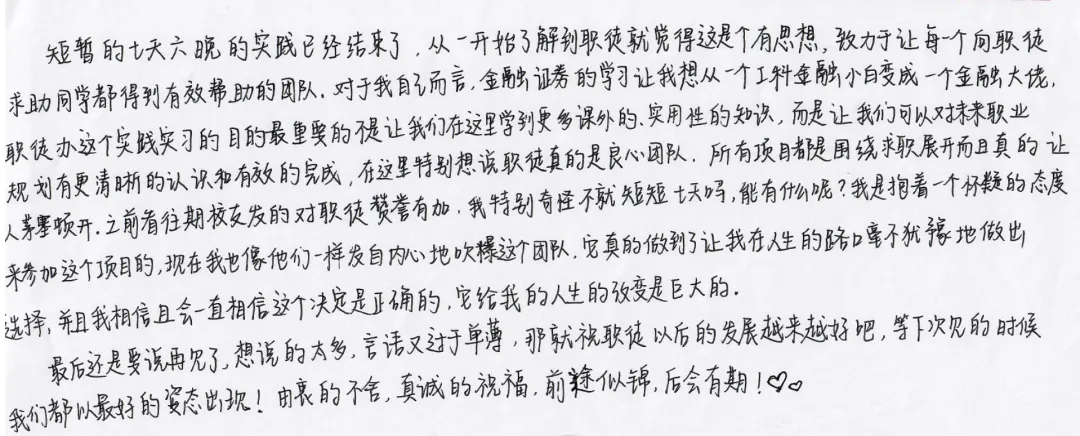 短暂的七天六晚的实践已经结束了，从一开始了解到职徒就觉得这是个有思想，致力于让每一个向职徒
求助同学都得到有效帮助的团队。对于我自己而言，金融证券的学习让我想从一个工科金融小白变成一个金融大佬，
职徒办这个实践实习的目的最重要的不是让我们在这里学到更多课外的、实用性的知识，而是让我们可以对未来职业
规划有更清晰的认识和有效的完成，在这里特别想说职徒真的是良心团队，所有项目都是围绕求职展开而且真的让
人茅塞顿开。之前看往期校友发的对职徒赞誉有加，我特别奇怪不就短短七天吗，能有什么呢？我是抱着一个怀疑的态度
来参加这个项目的，现在我也像他们一样发自内心地吹爆这个团队，它真的做到了让我在人生的路口毫不犹豫地做出
选择，并且我相信且会一直相信这个决定是正确的，它给我的人生的改变是巨大的。
最后还是要说再见了，想说的太多，言语又过于单薄，那就祝职徒以后的发展越来越好吧，等下次见的时候
我们都以最好的姿态出现！由衷的不舍，真诚的祝福，前途似锦，后会有期！♡♡